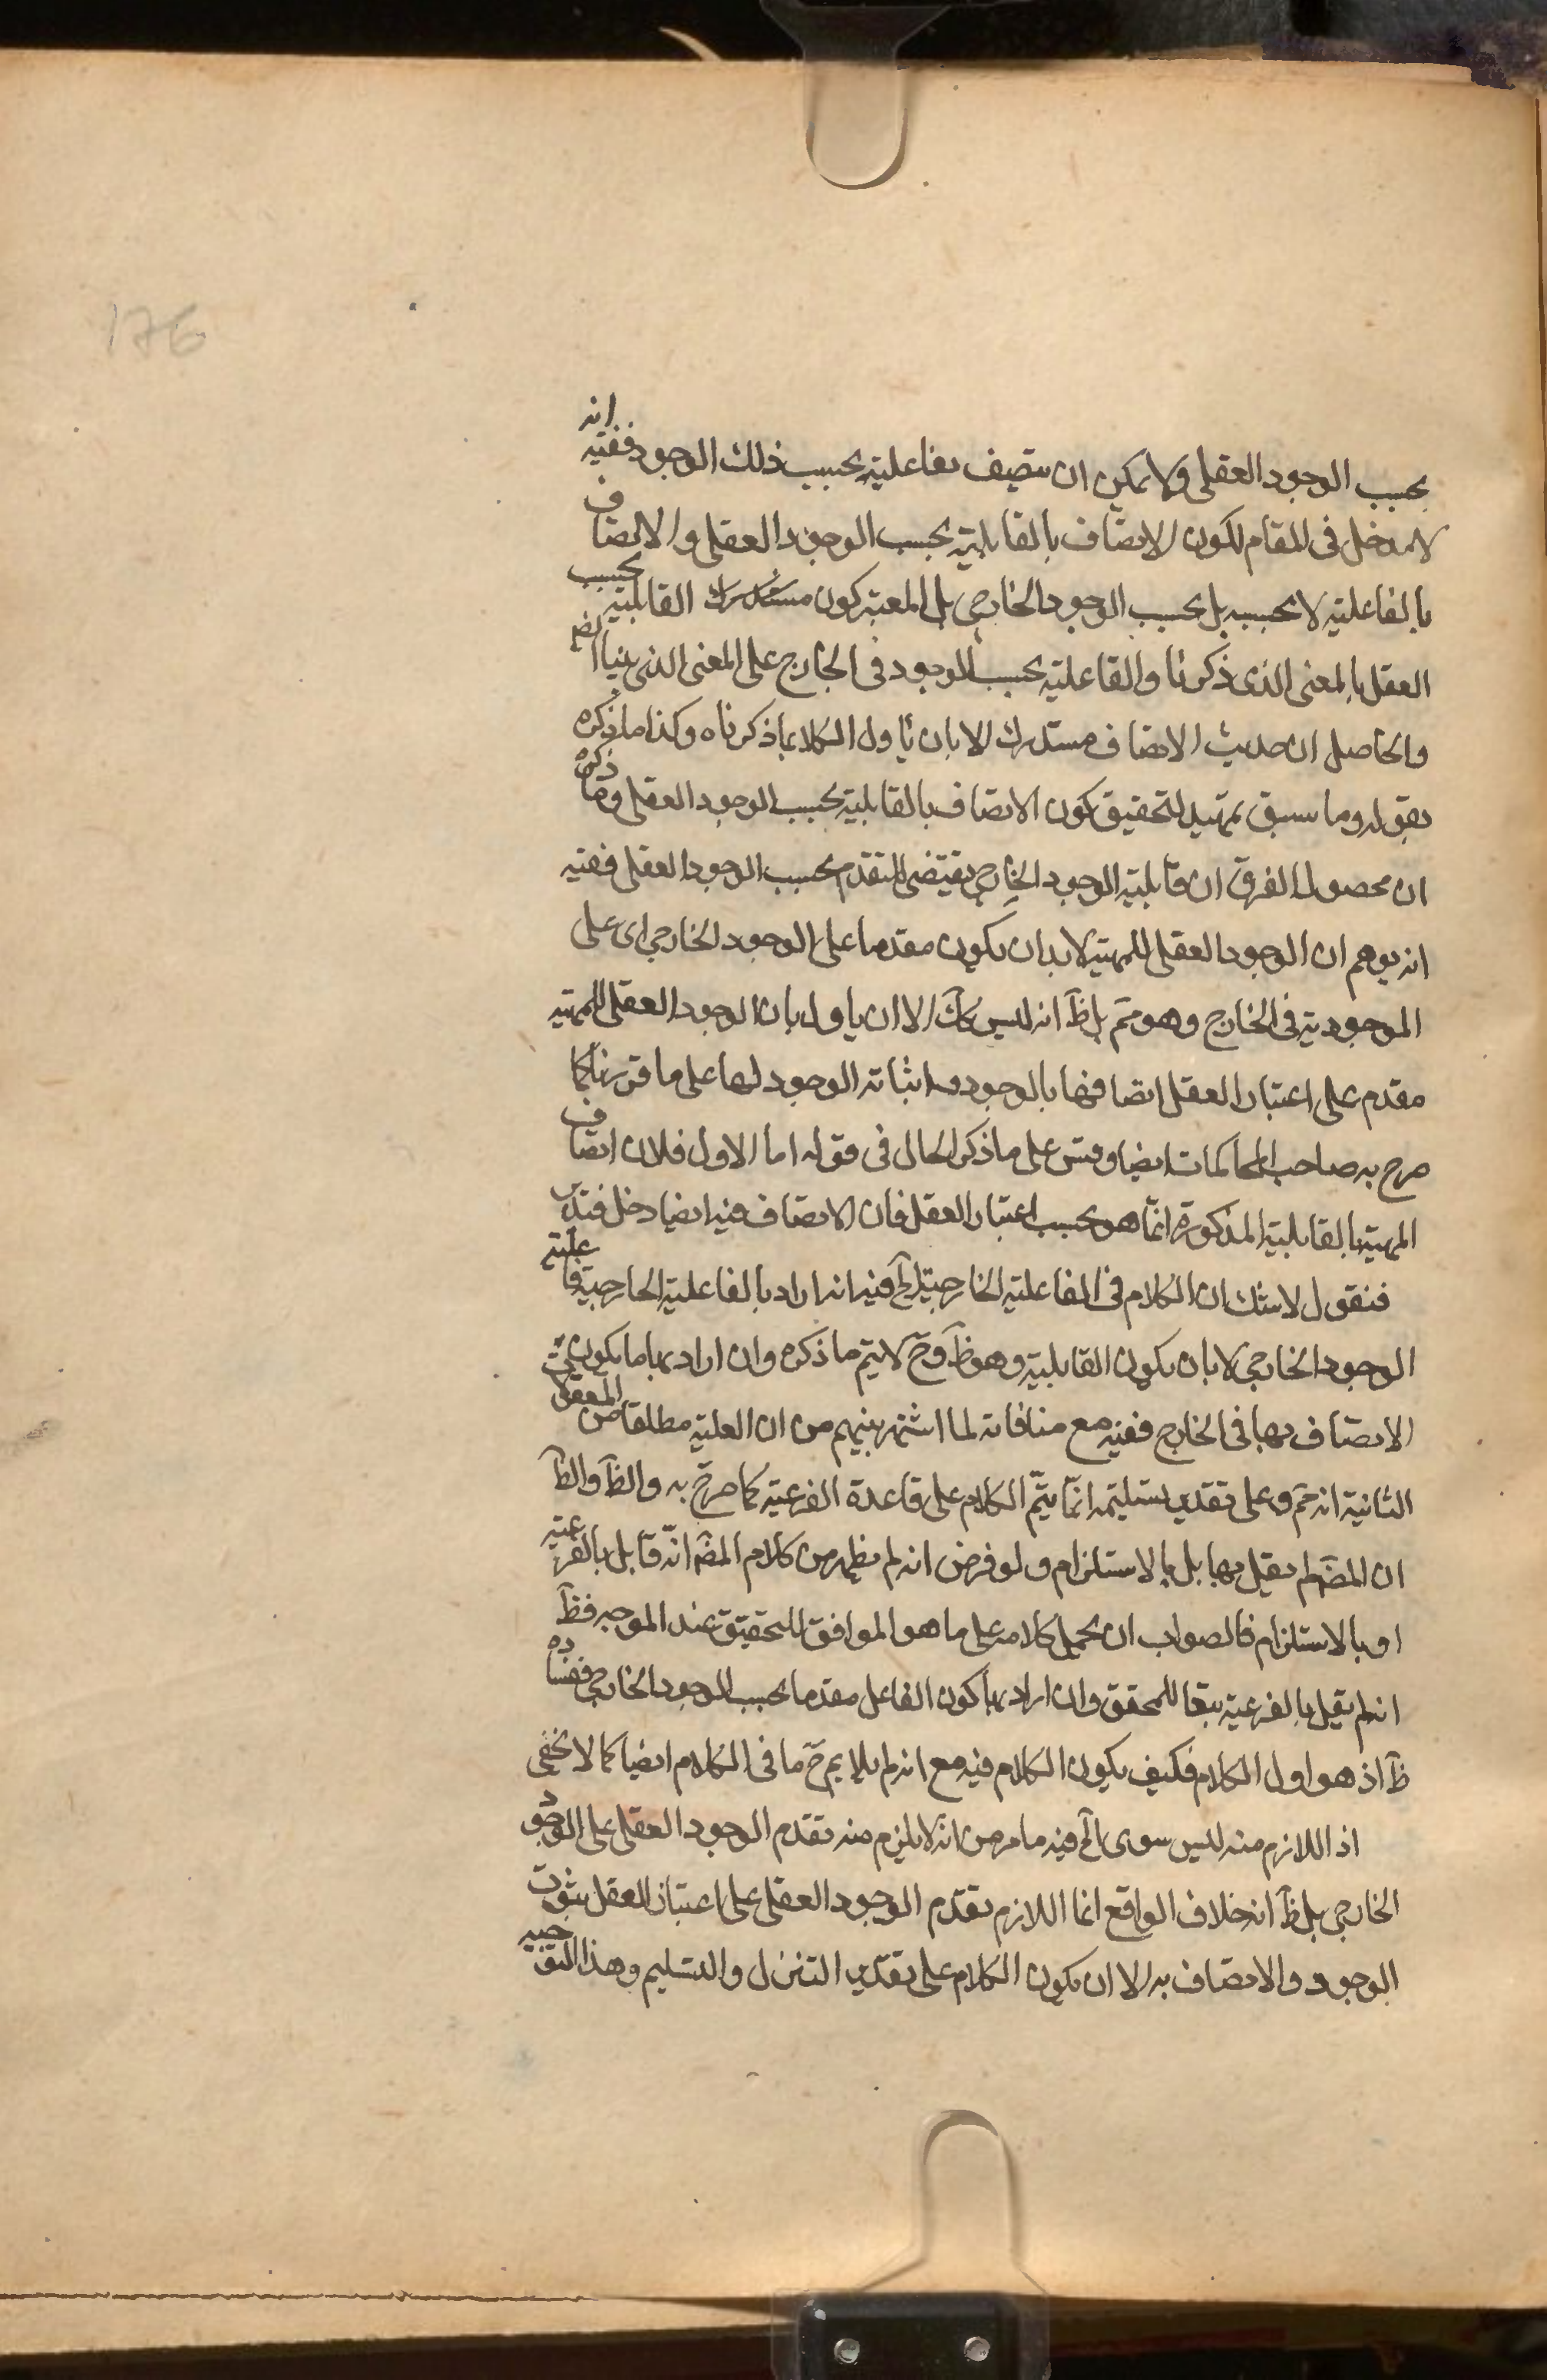 176
بحسب الوجود العقلى ولا يمكن ان يتصف بفاعليته بحسب ذلك الوجود ففيه انه
لا مدخل فى المقام لكون الاتصاف بالقابلية بحسب الوجود العقلى والاتصاف
بالفاعلية لا بحسبه بل بحسب الوجود الخارجى بل المعتبر كون القابلية بحسب
العقل بالمعنى الذى ذكرنا والفاعلية بحسب الوجود فى الخارج على المعنى الذى
والحاصل ان حديث الاتصاف مستدرك الا بان ياول الكلام بما ذكرناه وكذا ما ذكره
بقوله وما سبق تمهيد لتحقيق كون الاتصاف بالقابلية بحسب الوجود العقلى وما ذكره
ان محصول الفرق ان قابلية الوجود الخارجى يقتضى التقدم بحسب الوجود العقلى ففيه
انه يوهم ان الوجود العقلى للمهية لا بد ان يكون مقدما على الوجود الخارجى اى على
الموجودية فى الخارج وهو مم بل ظ انه ليس كك الا ان ياول بان الوجود العقلى للمهية
مقدم على اعتبار العقل اتصافها بالوجود واثباته الوجود لها على ما قررنا كما
صرح به صاحب المحاكمات ايضا وقس على ما ذكر الحال فى قوله اما الاول فلان اتصاف
المهية بالقابلية المذكورة انما هو بحسب اعتبار العقل فان الاتصاف فيه ايضا دخل فتدبر
فنقول لا شك ان الكلام فى الفاعلية الخارجية الخ فيه انه اراد بالفاعلية الخارجية فاعلية
الوجود الخارجى لا بان يكون القابلية وهو ظ وح لا يتم ما ذكره وان اراد بها ما يكون
الاتصاف بها فى الخارج ففيه مع منافاته لما اشتهر بينهم من ان العلية مطلقا من المعقولات
الثانية انه مم وعلى تقدير تسليمه انما يتم الكلام على قاعدة الفرعية كما صرح به والظ والظ
ان المصم لم يقل بها بل بالاستلزام ولو فرض انه لم يظهر من كلام المصم انه قابل بالفرعية
او بالاستلزام فالصواب ان يحمل كلامه على ما هو الموافق للتحقيق عند الموجه فظ
انه لم يقل بالفرعية تبعا للمحقق وان اراد بها كون الفاعل مقدما بحسب الوجود الخارجى ففساده
ظ اذ هو اول الكلام فكيف يكون الكلام فيه مع انه لم يلايم ح ما فى الكلام ايضا كما لا يخفى
اذ اللازم منه ليس سوى الخ فيه ما مر من انه لا يلزم منه تقدم الوجود العقلى على الوجود
الخارجى بل ظ انه خلاف الواقع انما اللازم تقدم الوجود العقلى على اعتبار العقل بثبوت
الوجود والاتصاف به الا ان يكون الكلام على تقدير التنزل والتسليم وهذا التوجيه